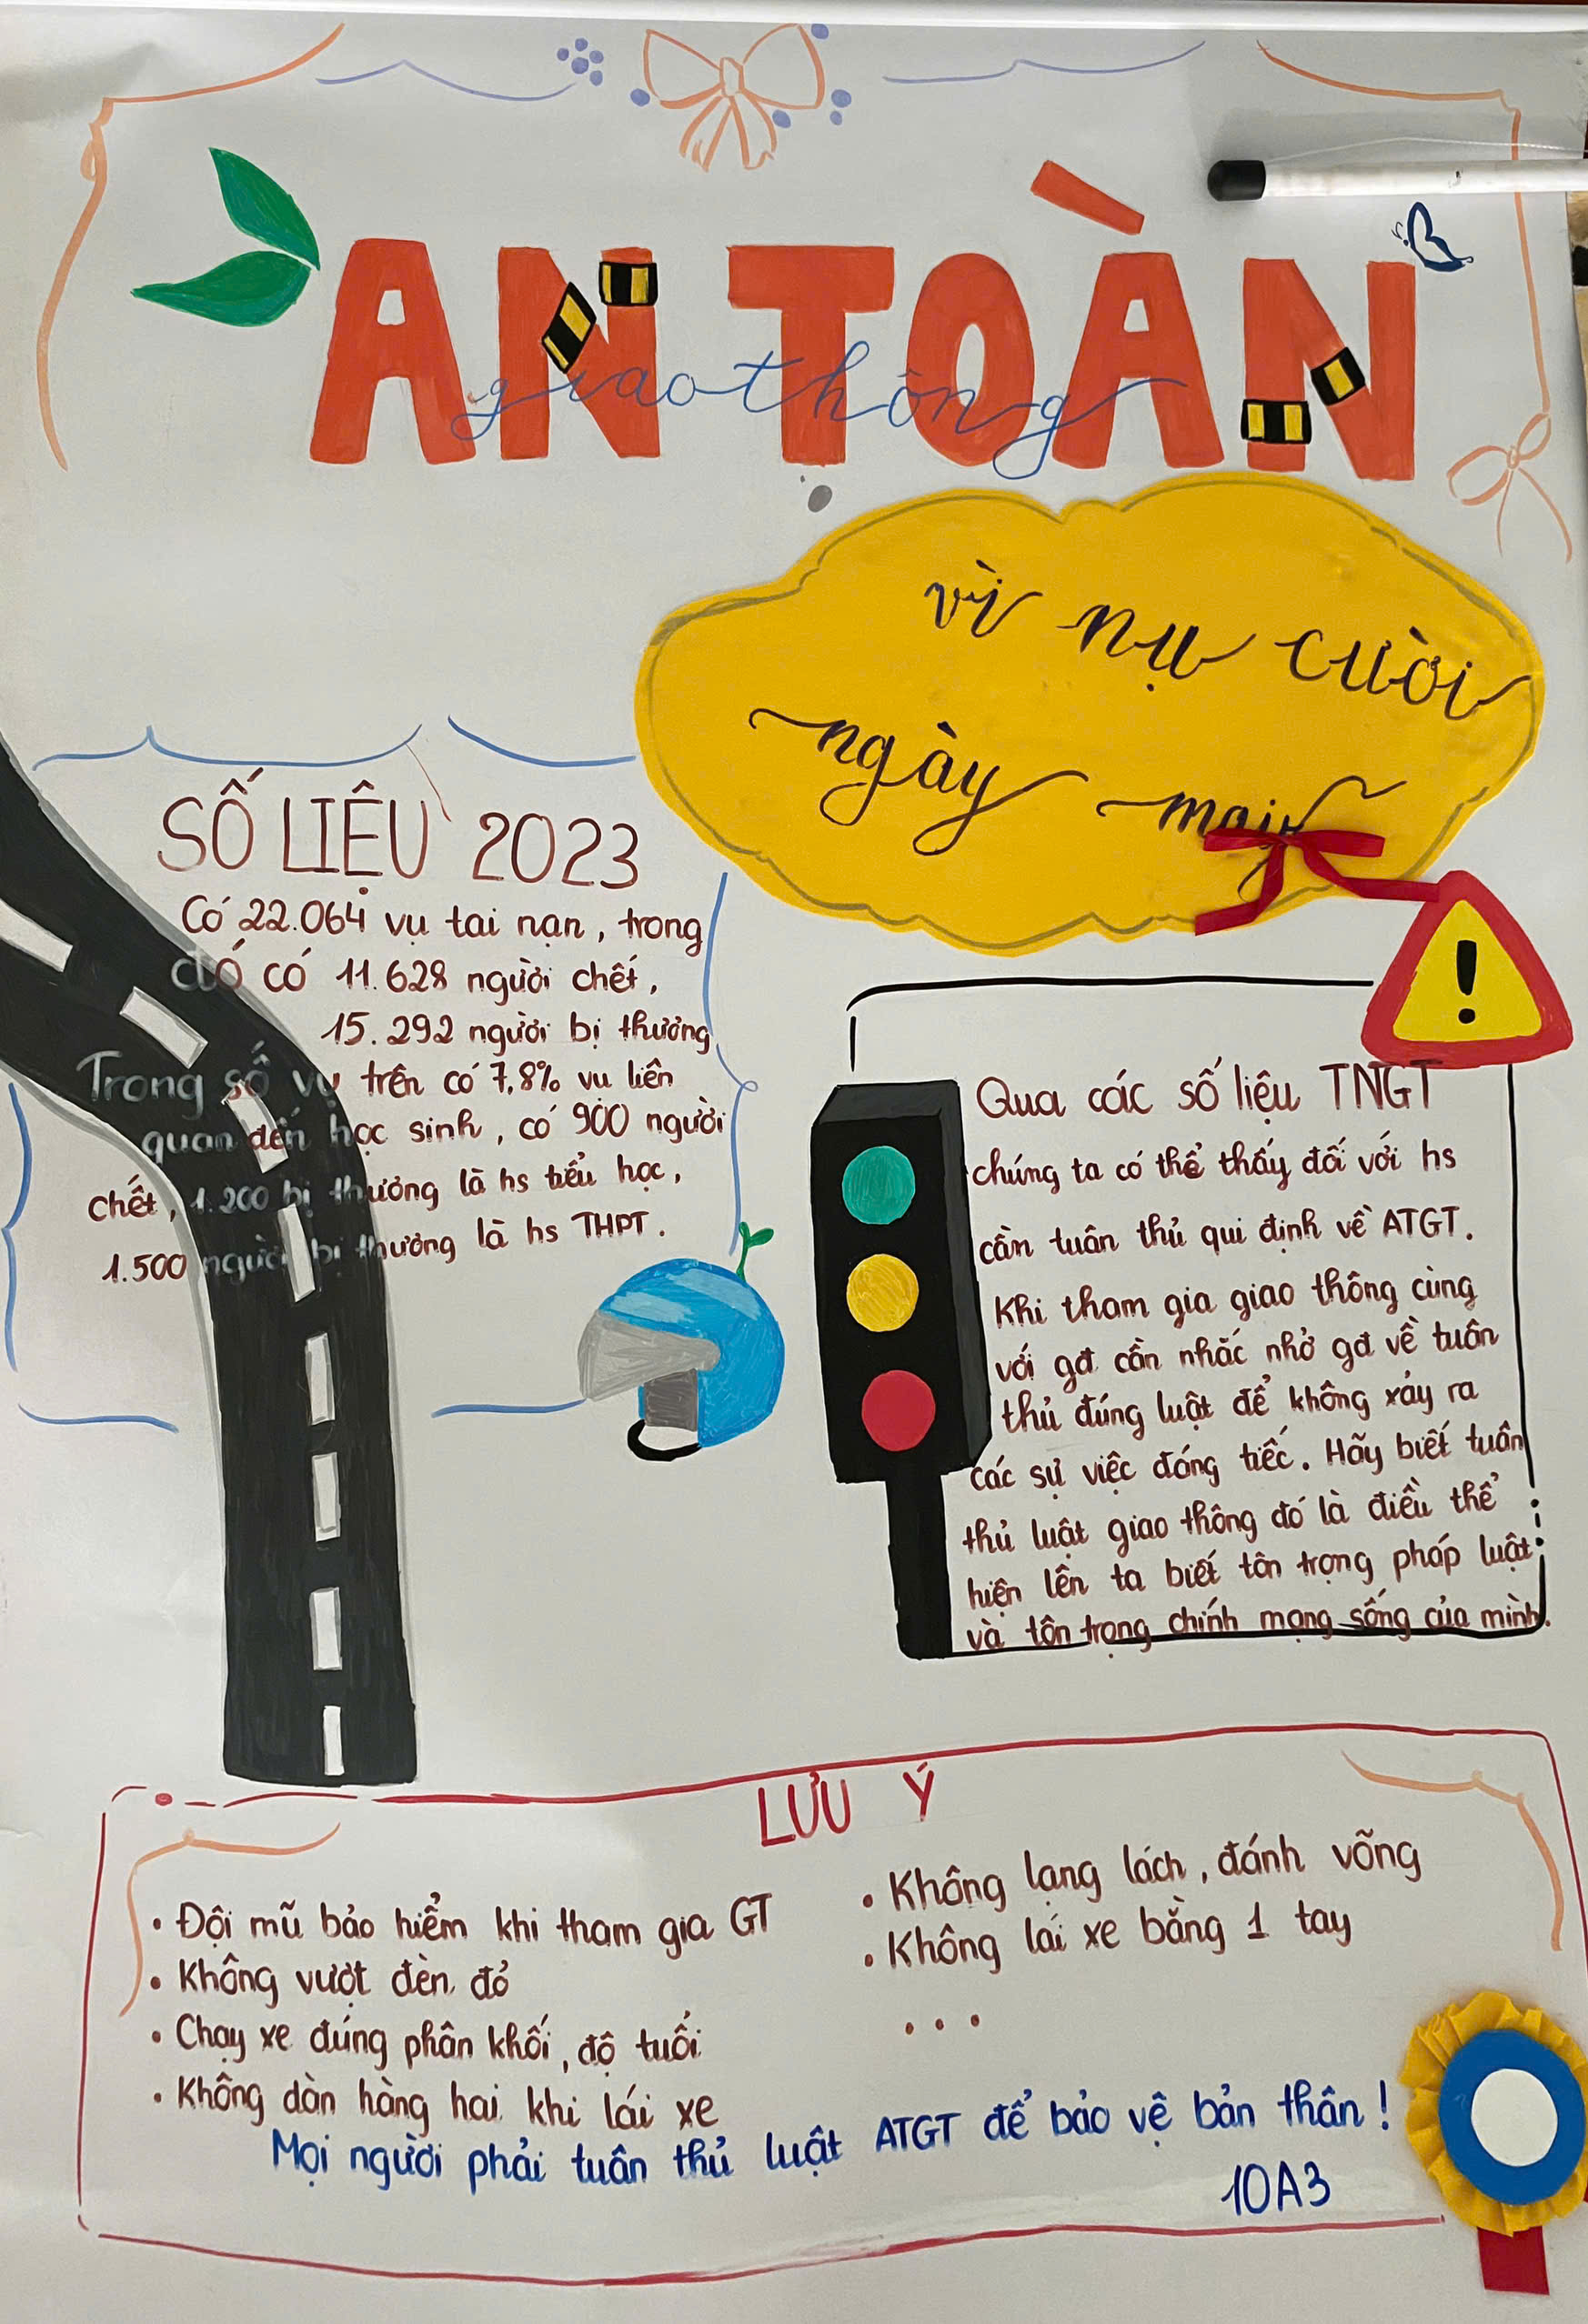 AN TOÀN
giao thông
vì nụ cười
ngày mai
SỐ LIỆU 2023
Có 22.064 vụ tai nạn, trong
đó có 11.628 người chết,
15.292 người bị thương
Trong số vụ trên có 7,8% vụ liên
quan đến học sinh, có 900 người
chết, 1.200 bị thương là hs tiểu học,
1.500 người bị thương là hs THPT.
!
Qua các số liệu TNGT
chúng ta có thể thấy đối với hs
cần tuân thủ qui định về ATGT.
Khi tham gia giao thông cùng
với gđ cần nhắc nhở gđ về tuân
thủ đúng luật để không xảy ra
các sự việc đáng tiếc. Hãy biết tuân
thủ luật giao thông đó là điều thể
hiện lên ta biết tôn trọng pháp luật
và tôn trọng chính mạng sống của mình.
LƯU Ý
• Đội mũ bảo hiểm khi tham gia GT
• Không vượt đèn đỏ
• Chạy xe đúng phân khối, độ tuổi
• Không dàn hàng hai khi lái xe
• Không lạng lách, đánh võng
• Không lái xe bằng 1 tay
...
Mọi người phải tuân thủ luật ATGT để bảo vệ bản thân!
10A3